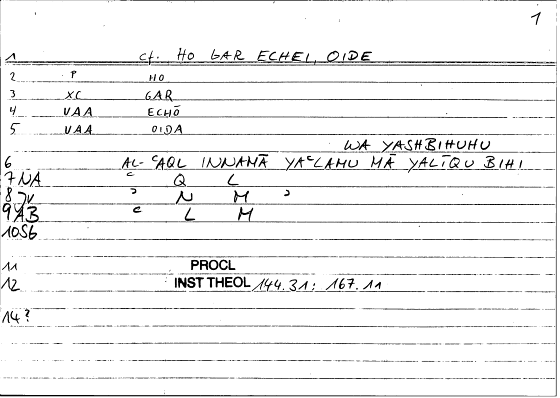 1
1 cf. HO GAR ECHEI, OIDE
2 P HO
3 XC GAR
4 VAA ECHŌ
5 VAA OIDA
WA YASHBIHUHU
6 AL-ᶜAQL INNAMĀ YAᶜLAMU MĀ YALĪQU BIHI
7 NA ᶜ Q L
8 JV ʾ N M ʾ
9 AB ᶜ L M
10 S6
11 PROCL
12 INST THEOL 144.31; 167.11
14?